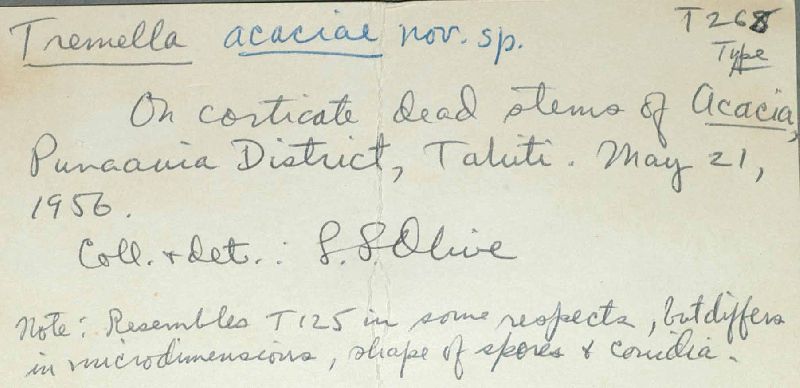 Tremella acaciae nov. sp.
T268
Type
On corticate dead stems of Acacia,
Punaauia District, Tahiti. May 21,
1956.
Coll. & det.: L.S. Olive
Note: Resembles T125 in some respects, but differs
in microdimensions, shape of spores & conidia.